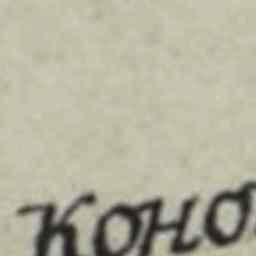 коно